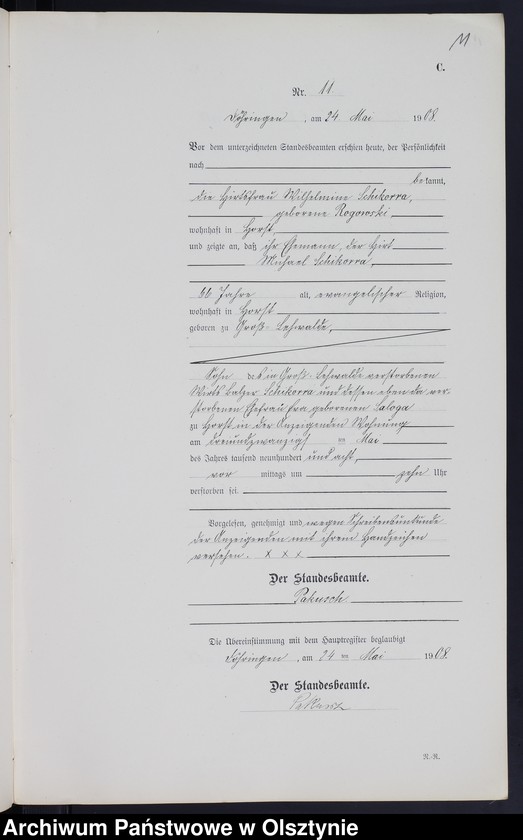 11
C.
Nr. 11.
Döhringen, am 24 Mai 1908.
Vor dem unterzeichneten Standesbeamten erschien heute, der Persönlichkeit
nach
bekannt,
die Hirtsfrau Wilhelmine Schikorra,
geborene Rogowski
wohnhaft in Horst
und zeigte an, daß ihr Ehemann, der Hirt
Michael Schikorra,
66 Jahre alt, evangelischer Religion,
wohnhaft in Horst
geboren zu Groß-Lehwalde,
Sohn des in Groß-Lehwalde verstorbenen
Wirts Balzer Schikorra und dessen eben da ver-
storbenen Ehefrau Eva geborenen Saloga
zu Horst in der Anzeigenden Wohnung
am dreiundzwanzigsten Mai
des Jahres tausend neunhundert und acht,
vor mittags um zehn Uhr
verstorben sei.
Vorgelesen, genehmigt und wegen Schreibensunkunde
der Anzeigenden mit ihrem Handzeichen
versehen. x x x
Der Standesbeamte.
Pakusch
Die Übereinstimmung mit dem Hauptregister beglaubigt
Döhringen, am 24 ten Mai 1908.
Der Standesbeamte.
Pakusch
N.-R.
Archiwum Państwowe w Olsztynie